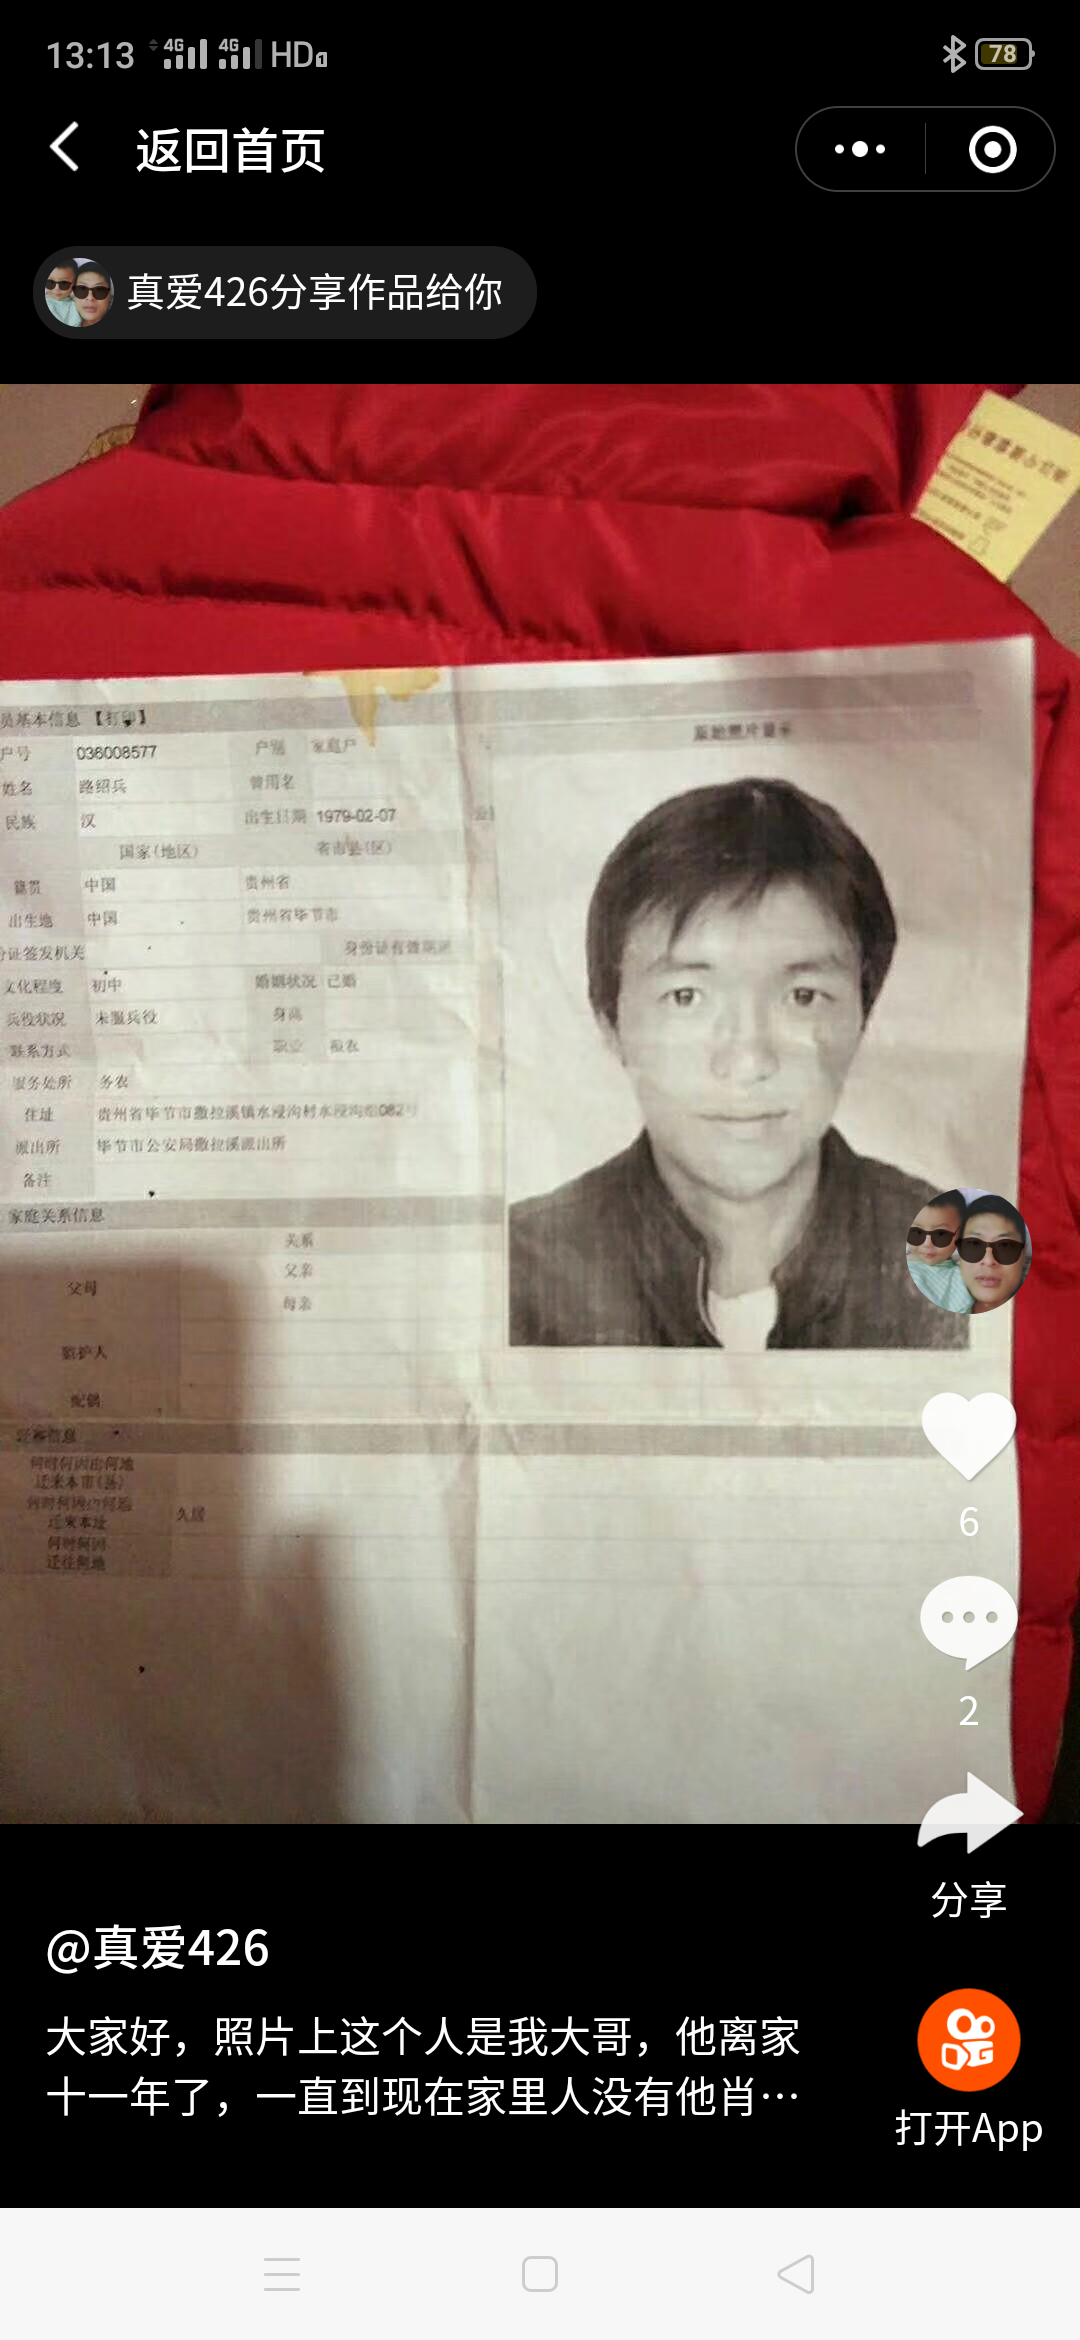 13:13
4G
4G
HD1
78
返回首页
真爱426分享作品给你
员基本信息 【打印】
户号 036008577 户别 家庭户
姓名 路绍兵 曾用名
民族 汉 出生日期 1979-02-07
国家(地区) 省市县(区)
籍贯 中国 贵州省
出生地 中国 贵州省毕节市
份证签发机关 身份证有效期
文化程度 初中 婚姻状况 已婚
兵役状况 未服兵役 身高
联系方式 职业
服务处所 务农
住址 贵州省毕节市撒拉溪镇水浸沟村水浸沟组082号
派出所 毕节市公安局撒拉溪派出所
备注
家庭关系信息
关系
父母 父亲
母亲
监护人
配偶
何时何因由何地
迁来本市(县)
迁来本址 久居
何时何因
迁往何地
原始照片显示
6
2
分享
@真爱426
大家好，照片上这个人是我大哥，他离家
十一年了，一直到现在家里人没有他肖…
打开App